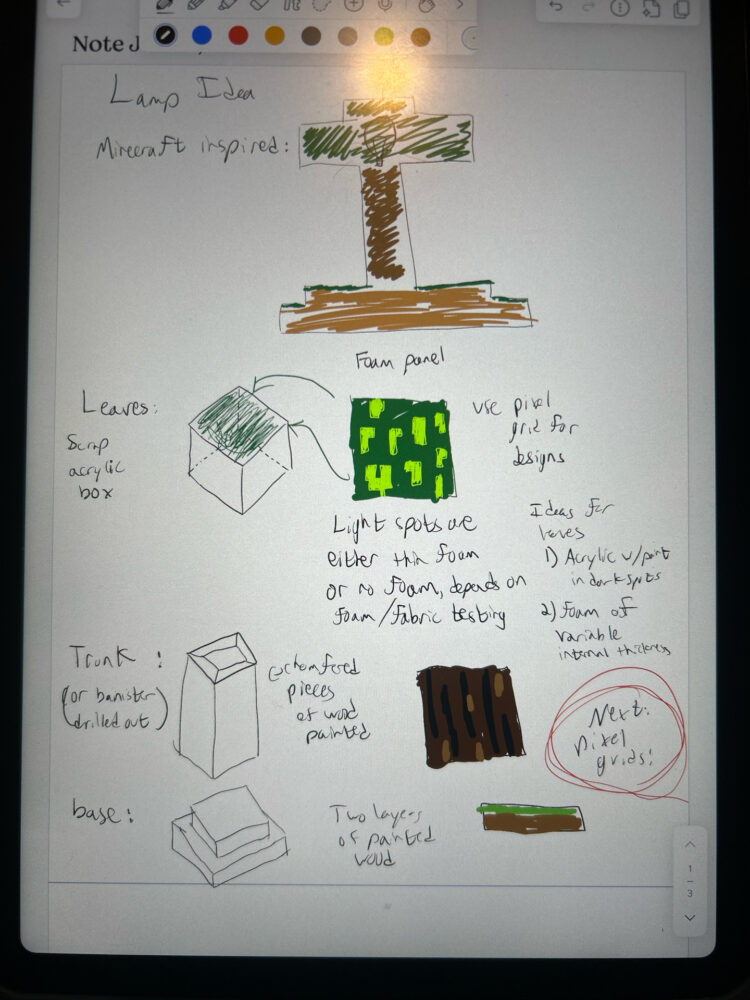 Note J
Lamp Idea
Minecraft inspired:
Foam panel
Leaves:
Scrap
acrylic
box
use pixel
grid for
designs
Light spots are
either thin foam
or no foam, depends on
foam/fabric testing
Ideas for
leaves
1) Acrylic w/paint
in dark spots
2) Foam of
variable
internal thickness
Trunk :
(or banister
drilled out)
chamfered
pieces
of wood
painted
Next:
pixel
grids!
base:
Two layers
of painted
wood
1
3